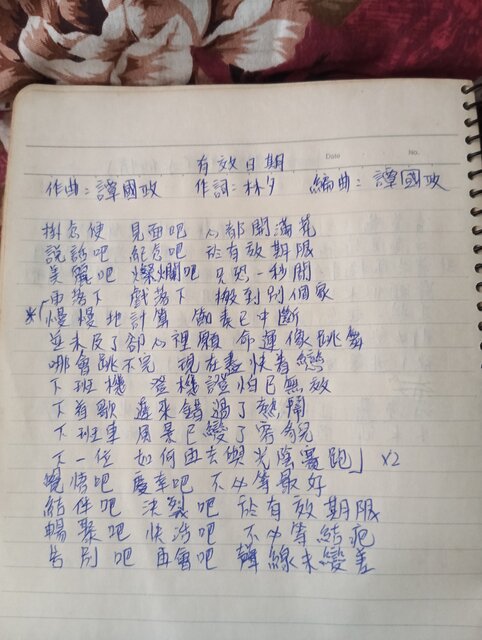 有效日期
Date
No.
作曲：譚國政 作詞：林夕 編曲：譚國政
掛念便 見面吧 心都開滿花
說話吧 紀念吧 於有效期限
美麗吧 燦爛吧 只恐一秒間
雨落下 戲落下 搬到別個家
*「慢慢地計算 節奏已中斷
並未反了卻心裡願 命運像跳舞
哪會跳不完 現在盡快眷戀
下班機 登機證怕已無效
下首歌 遲來錯過了熱鬧
下班車 風景已變了容貌
下一位 如何由去與光陰賽跑」 ×2
覺悟吧 慶幸吧 不必等最好
結伴吧 決裂吧 於有效期限
暢聚吧 快活吧 不必等結疤
告別吧 再會吧 聲線未變差